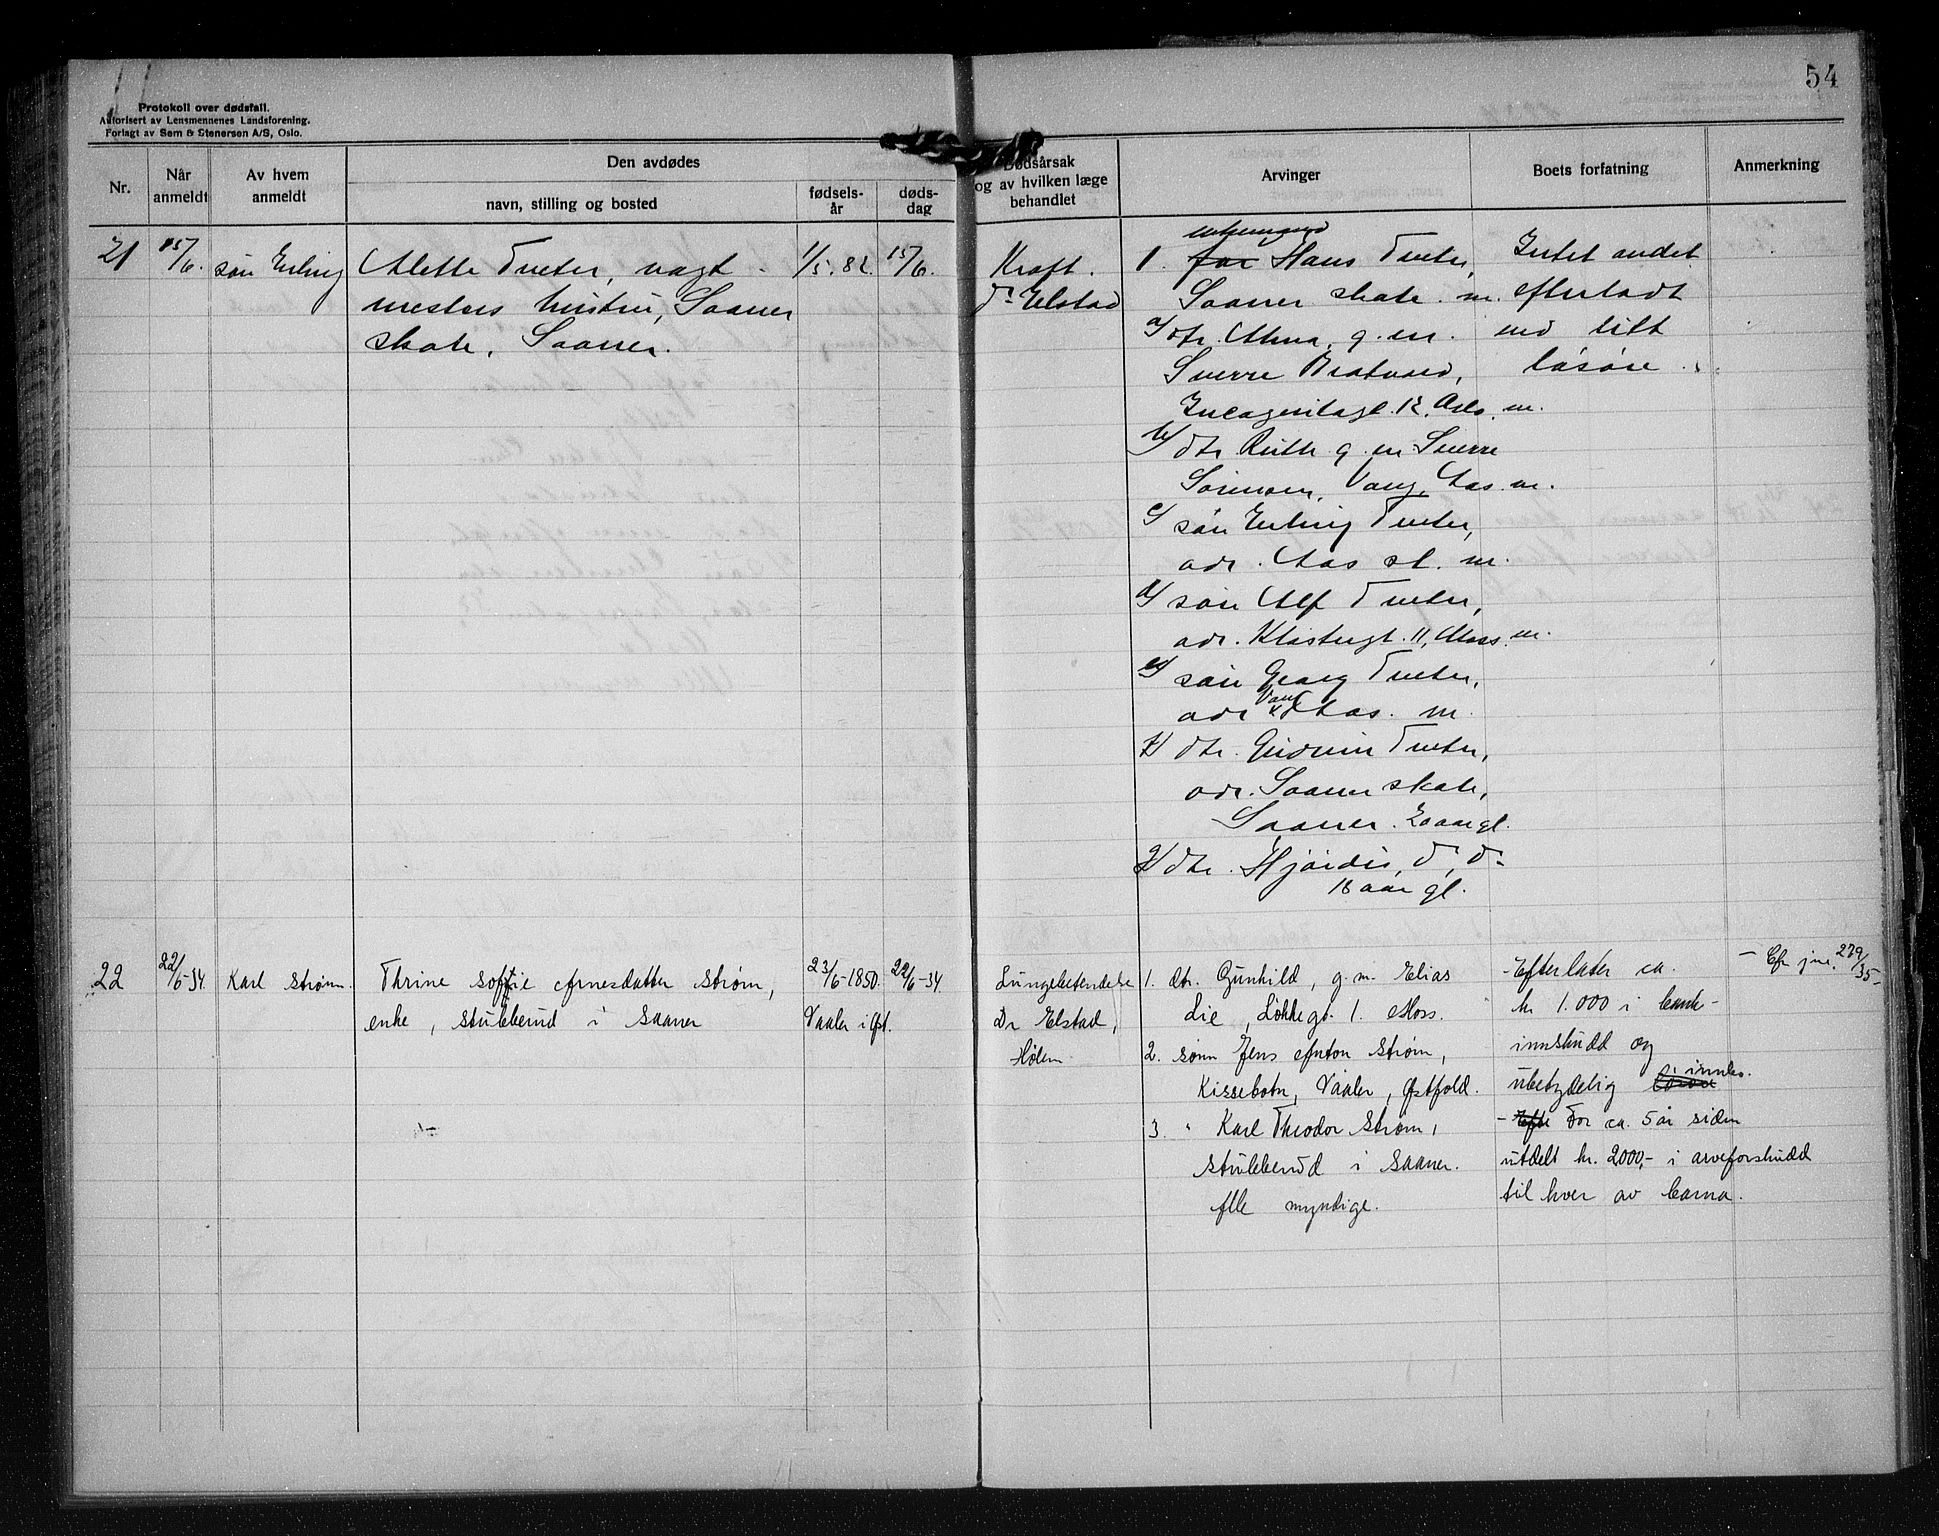 54
Protokoll over dødsfall.
Autorisert av Lensmennenes Landsforening.
Forlagt av Sem & Stenersen A/S, Oslo.
Nr.
Når
anmeldt
Av hvem
anmeldt
Den avdødes
navn, stilling og bosted
fødsels-
år
døds-
dag
Dødsårsak
og av hvilken læge
behandlet
Arvinger
Boets forfatning
Anmerkning
21
15/6.
søn Erling
Alette Tveter, vagt-
mesters hustru, Saaner
skole, Saaner.
1/5.82.
15/6.
Kræft.
Dr Elstad
enkemand
1. far Hans Tveter,
Saaner skole. m.
a/ dtr. Anna, g. m.
Sverre Bratvold,
12, Oslo. m.
b/ dtr Ruth g. m Sverre
Sørensen, Vang, Aas. m.
c/ søn Erling Tveter,
adr. Aas st. m.
d/ søn Alf Tveter,
adr. Klostergt. 11, Moss. m.
e/ søn Georg Tveter,
adr Vang Aas. m.
f/ dtr. Gudrun Tveter,
adr. Saaner skole,
Saaner. 20 aar gl.
g/ dtr. Hjördis, do, do
18 aar gl.
Intet andet
efterladt
end litt
løsøre.
22
22/6-34.
Karl Strøm.
Thrine Soffie Arnesdatter Strøm,
enke, Stubberud i Saaner
23/6-1850.
Vaaler i Øst.
22/6-34.
Lungebetendelse
Dr Elstad,
Hølen
1. dtr. Gunhild, g. m. Elias
Lie, Løkkegt. 1. Moss.
2. sønn Jens Anton Strøm,
Kissebotn, Vaaler, Østfold.
3. " Karl Theodor Strøm,
Stubberud i Saaner.
Alle myndige.
- Efterlater ca.
kr 1.000 i bank-
innskudd og
ubetydelig løsøre i innbo.
- Efte For ca. 5 år siden
utdelt kr. 2000,- i arveforskudd
til hver av barna.
- Cfr jnr. 279/35-